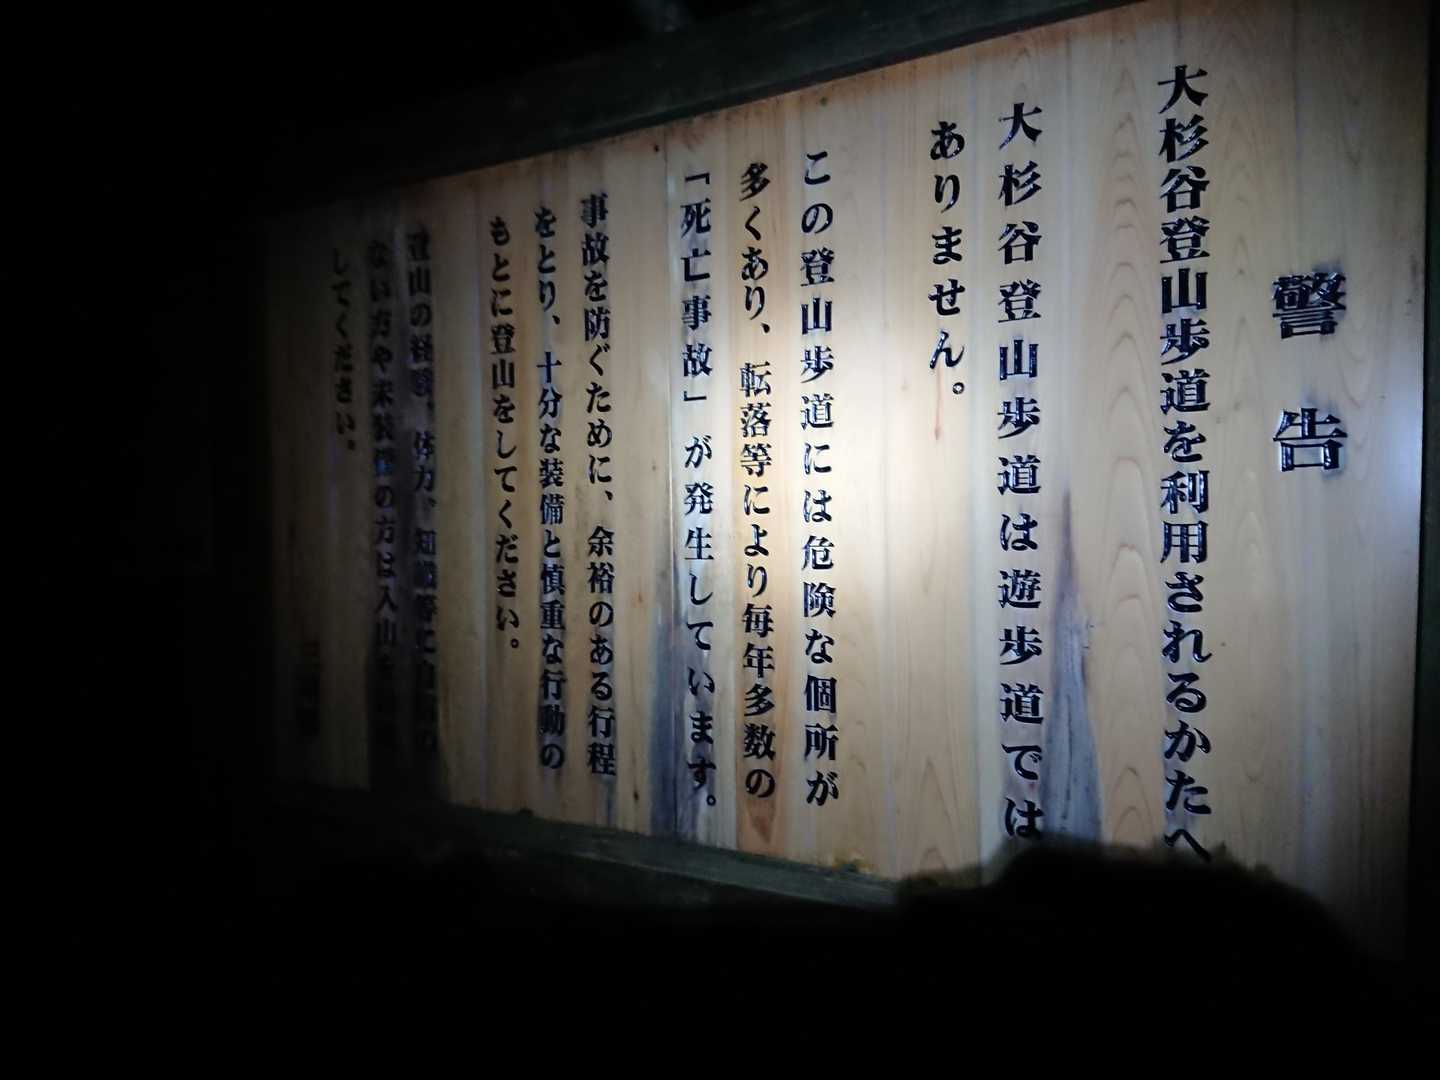 警告
大杉谷登山歩道を利用されるかたへ
大杉谷登山歩道は遊歩道では
ありません。
この登山歩道には危険な個所が
多くあり、転落等により毎年多数の
「死亡事故」が発生しています。
事故を防ぐために、余裕のある行程
をとり、十分な装備と慎重な行動の
もとに登山をしてください。
登山の経験、体力、知識等に自信の
ない方や未装備の方は入山を
してください。